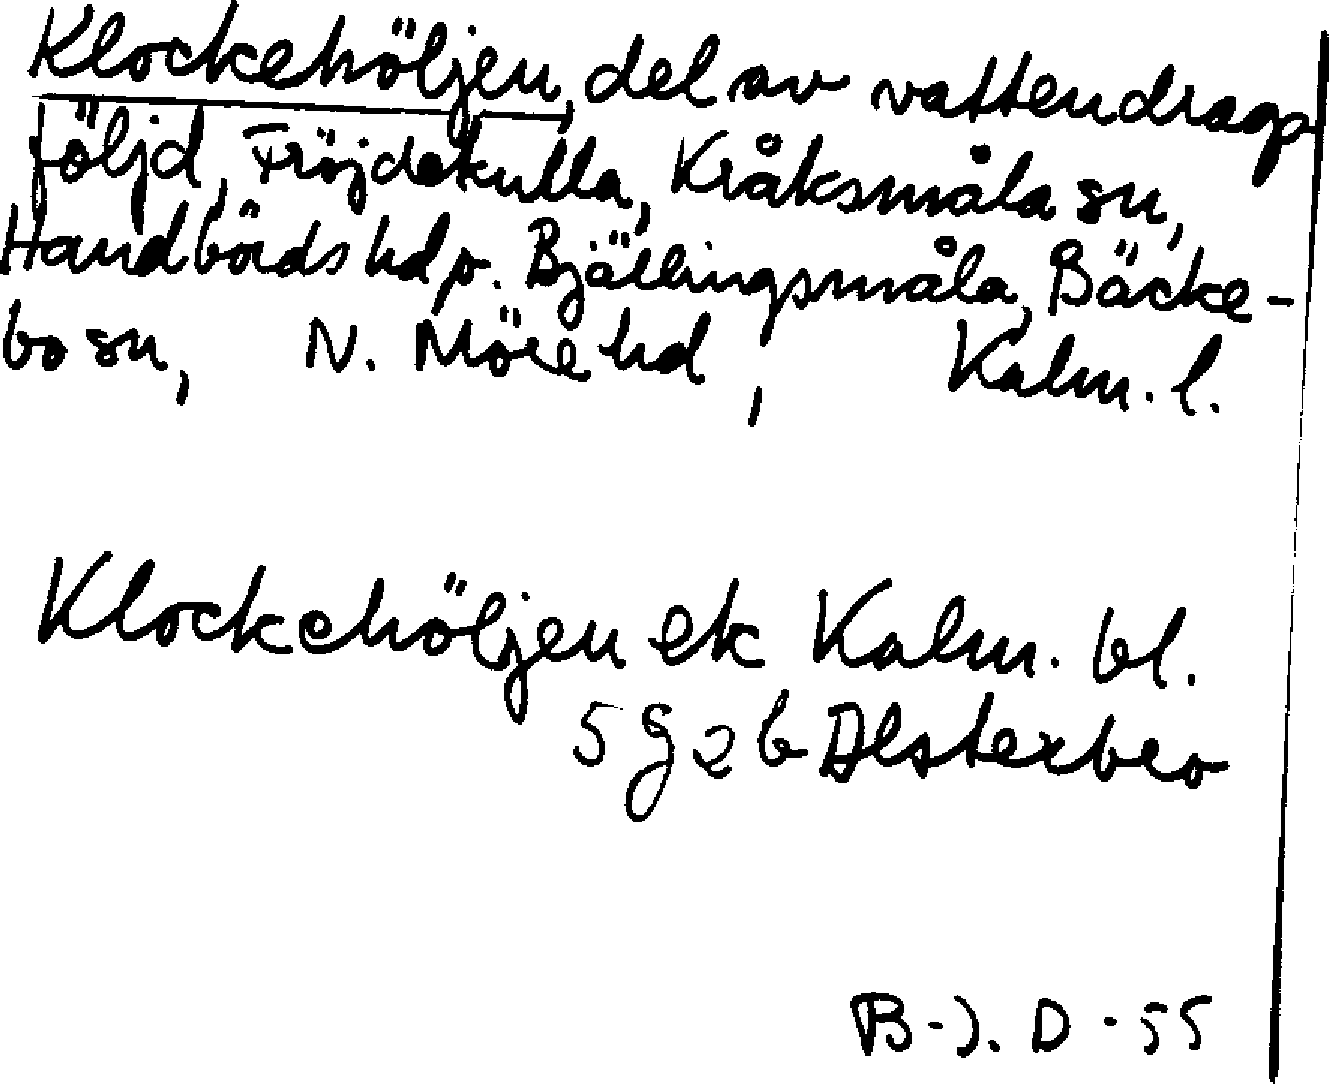 Klockehöljen, del av vattendrags-
följd, Fröjdekulla, Kråksmåla sn,
Handbörds hd o. Bjällingsmåla, Bäcke-
bo sn, N. Möre hd, Kalm. l.
Klockehöljen ek Kalm. bl.
5 g 2 b Alsterbro
B-J. D - 55